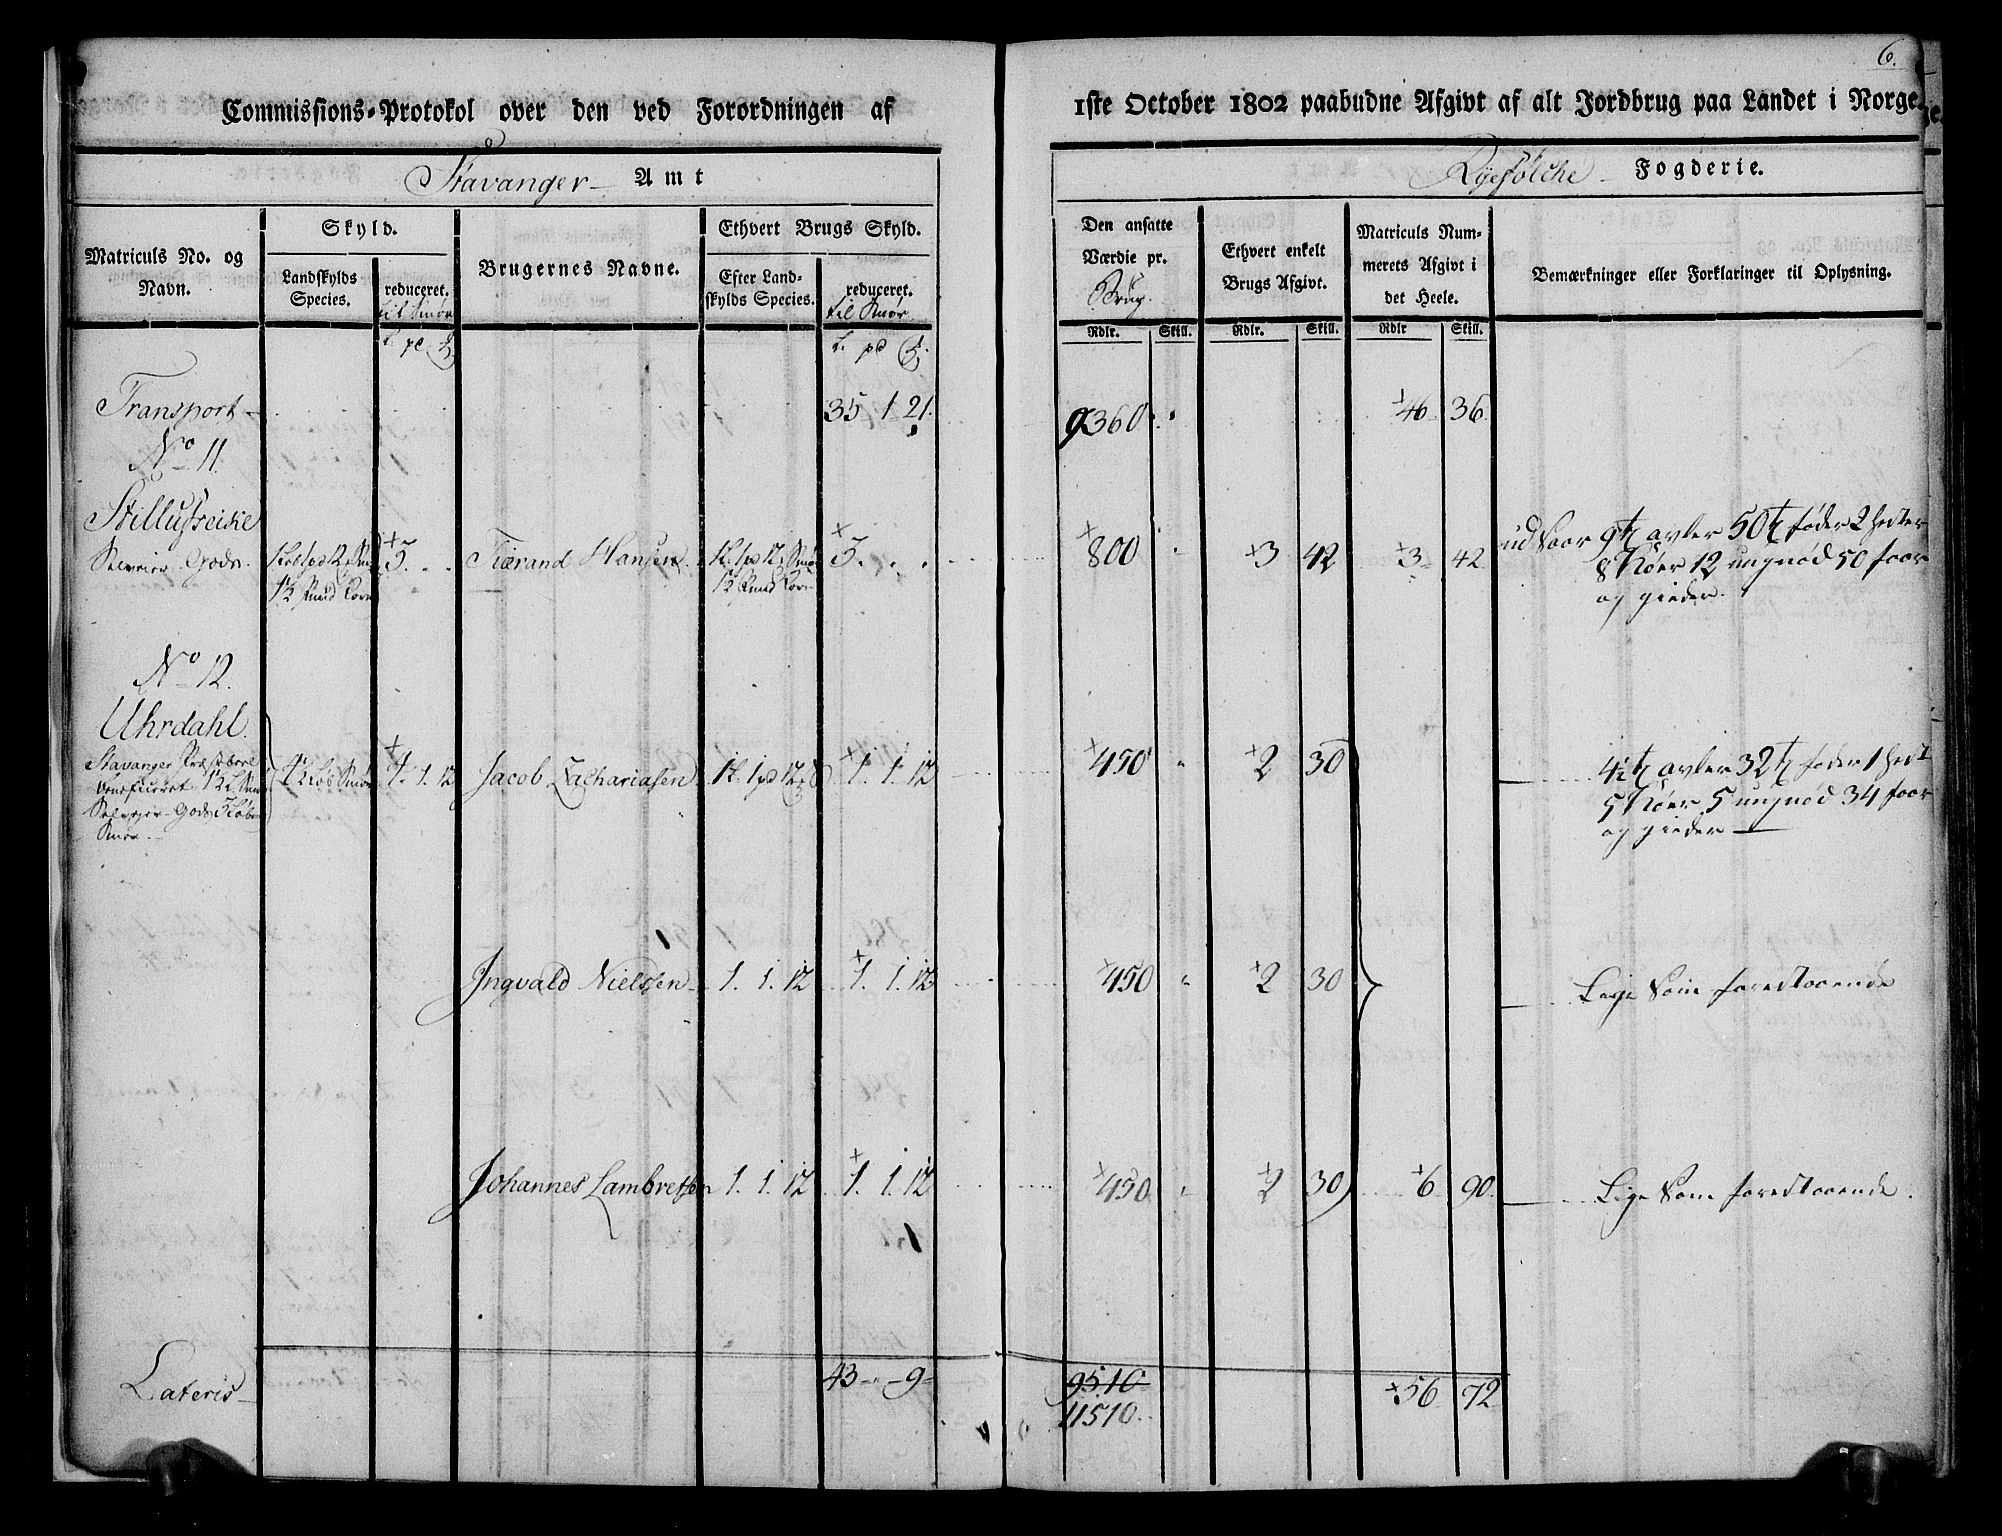 6.
Commissions-Protokol over den ved Forordningen af 1ste October 1802 paabudne Afgivt af alt Jordbrug paa Landet i Norge.
Stavanger Amt
Ryefølche Fogderie.
Matriculs No. og Navn.
Skyld.
Landskylds Species.
reduceret.
til Smør
Brugernes Navne.
Ethvert Brugs Skyld.
Efter Landskylds Species.
reduceret.
til Smør
Den ansatte Værdie pr.
Brug.
Rdlr. Skill.
Ethvert enkelt Brugs Afgivt.
Rdlr. Skill.
Matriculs Nummerets Afgivt i det Heele.
Rdlr Skill.
Bemærkninger eller Forklaringer til Oplysning.
Transport 35 1 21. 9360 46 36
No 11.
Selveier Gods. 5 Tierand Hansen 5. 800 3 42 3 42 9 avler 50 føder 2 Hester
8 Kiøer 12 ungnød 50 faar
og gieder.
No 12.
Uhrdahl.
Stavanger
4½ Løb Smør 4. 1. 12 Jacob Zachariasen 1. 1 12 1. 1. 12 450 2 30 4½ avler 32 føder 1 Hest
Selveier Gods 3 Løber
Smør.
5 Kiøer 5 ungnød 34 faar
og gieder
Ingvald Nielsen 1. 1. 12 1. 1. 12 450 2 30 Lige som forestaaende
Johannes Lambretsen 1. 1. 12 1. 1. 12 450 2 30 6 90. Lige som forestaaende.
Lateris 43 9 9510 56 72
11510.